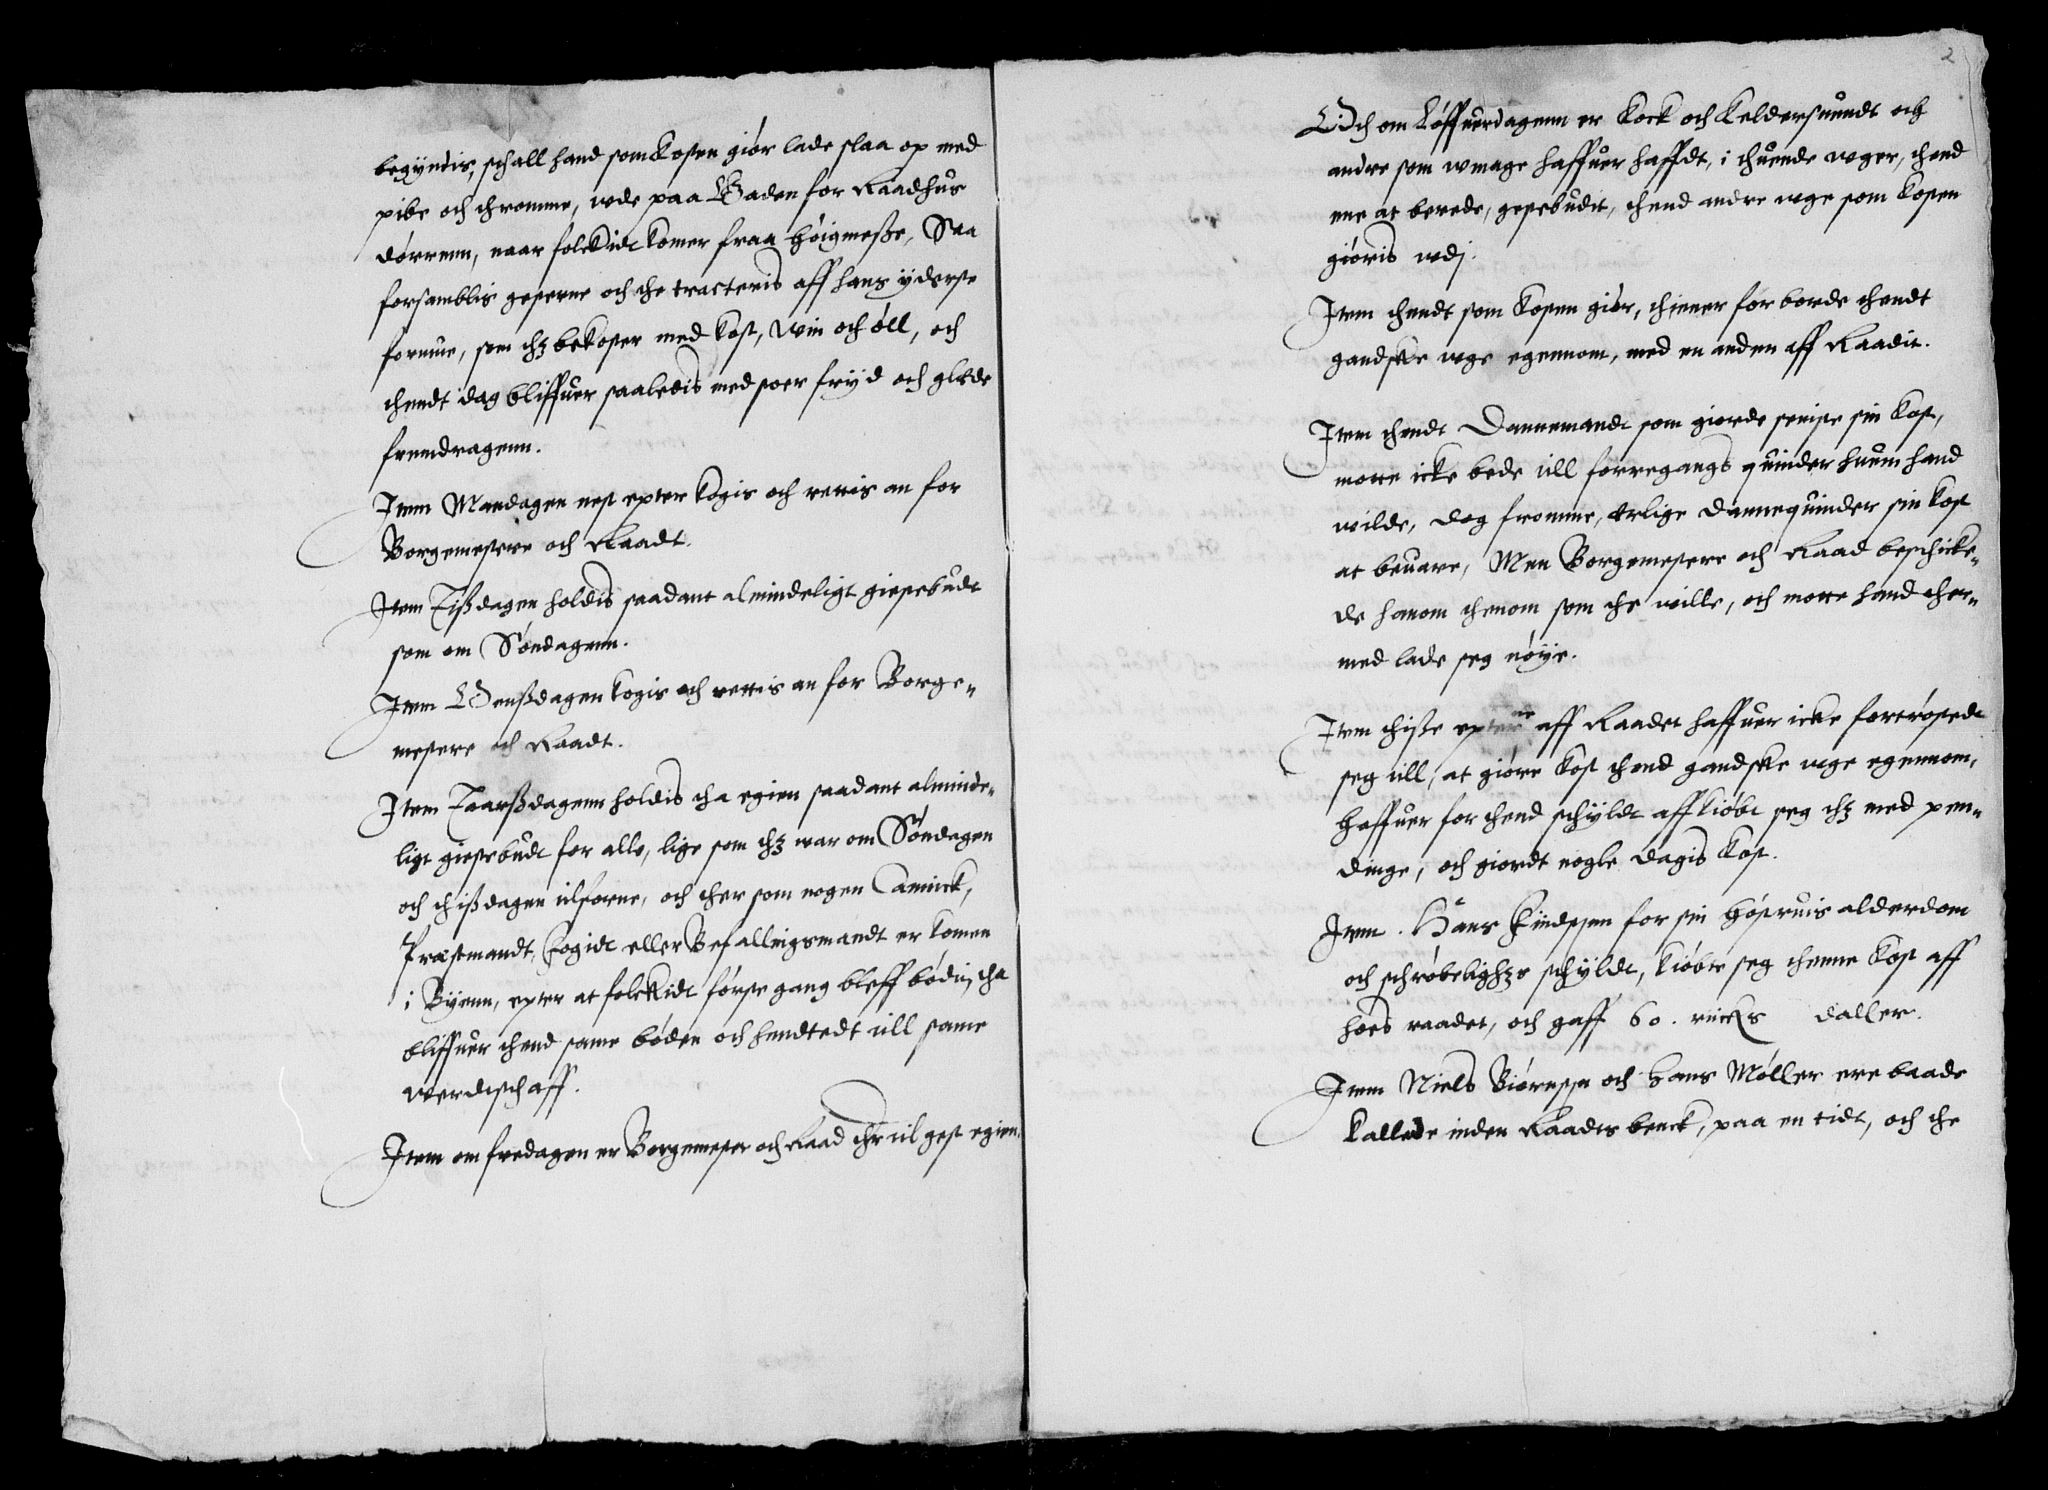 begyndis, schall hand som Kosten giör lade slaa op med
pibe och thromme, wde paa Gaden for Raadhus
dörrenn, naar folckidt komer fraa Höigmesße, Saa
forsamblis gesterne och the tracteris aff hans yderste
formue, som thz bekoster med kost, win och öll, och
thendt dag bliffuer saaledis med stoer fryd och glede
fremdragenn.
Item Mandagen nest epter kogis och rettis an for
Borgemestere och Raadt.
Item Tißdagen holdis saadant almindeligt giestebudt
som om Söndagenn.
Item Odenßdagen kogis och rettis an for Borge-
mestere och Raadt.
Item Taarßdagenn holdis tha egien saadant alminde-
ligt giestebudt for alle, lige som thz war om Söndagen
och thißdagen tilforne, och ther som nogen Cannick,
Præstmandt, Fogidt eller Befallingsmandt er komen
i Byenn, epter at folckidt förste gang bleff bödin, tha
bliffuer thend same böden och hendtedt till same
werdtschaff.
Item om fredagen er Borgemester och Raad ther til gest egien.
2
Och om Löffuerdagenn er Kock och Keldersuendt och
andre som wmage haffuer hafft, i thuende wger, thend
ene at berede, gestebudit, thend andre wge som Kosten
giöris wdj.
Item thendt som Kosten giör, thiener for borde thendt
gandske wge egennom, med en anden aff Raadit.
Item thendt Dannemandt som giorde seniste sin Kost,
motte icke bede till forregangs quinder huem hand
wilde, dog fromme, ærlige dannequinder sin kost
at beuare, Men Borgemestere och Raad beschicke-
de hanom thenom som the wille, och motte hand ther-
med lade seg nöye.
Item thisse epterne aff Raadet haffuer icke fortröstedt
seg till, at giöre Kost thend gandske wge egennom,
haffuer for thend schyldt affkiöbt seg thz med pen-
dinge, och giordt nogle dagis kost.
Item. Hans Findssen for sin Höstruis alderdom
och schröbelighz schyldt, kiöbte seg thenne Kost aff
hoes raadet, och gaff 60. rickes daller.
Item Niels Biörnssen och Hans Möller ere baade
kallede inden Raadts benck, paa en tidt, och the